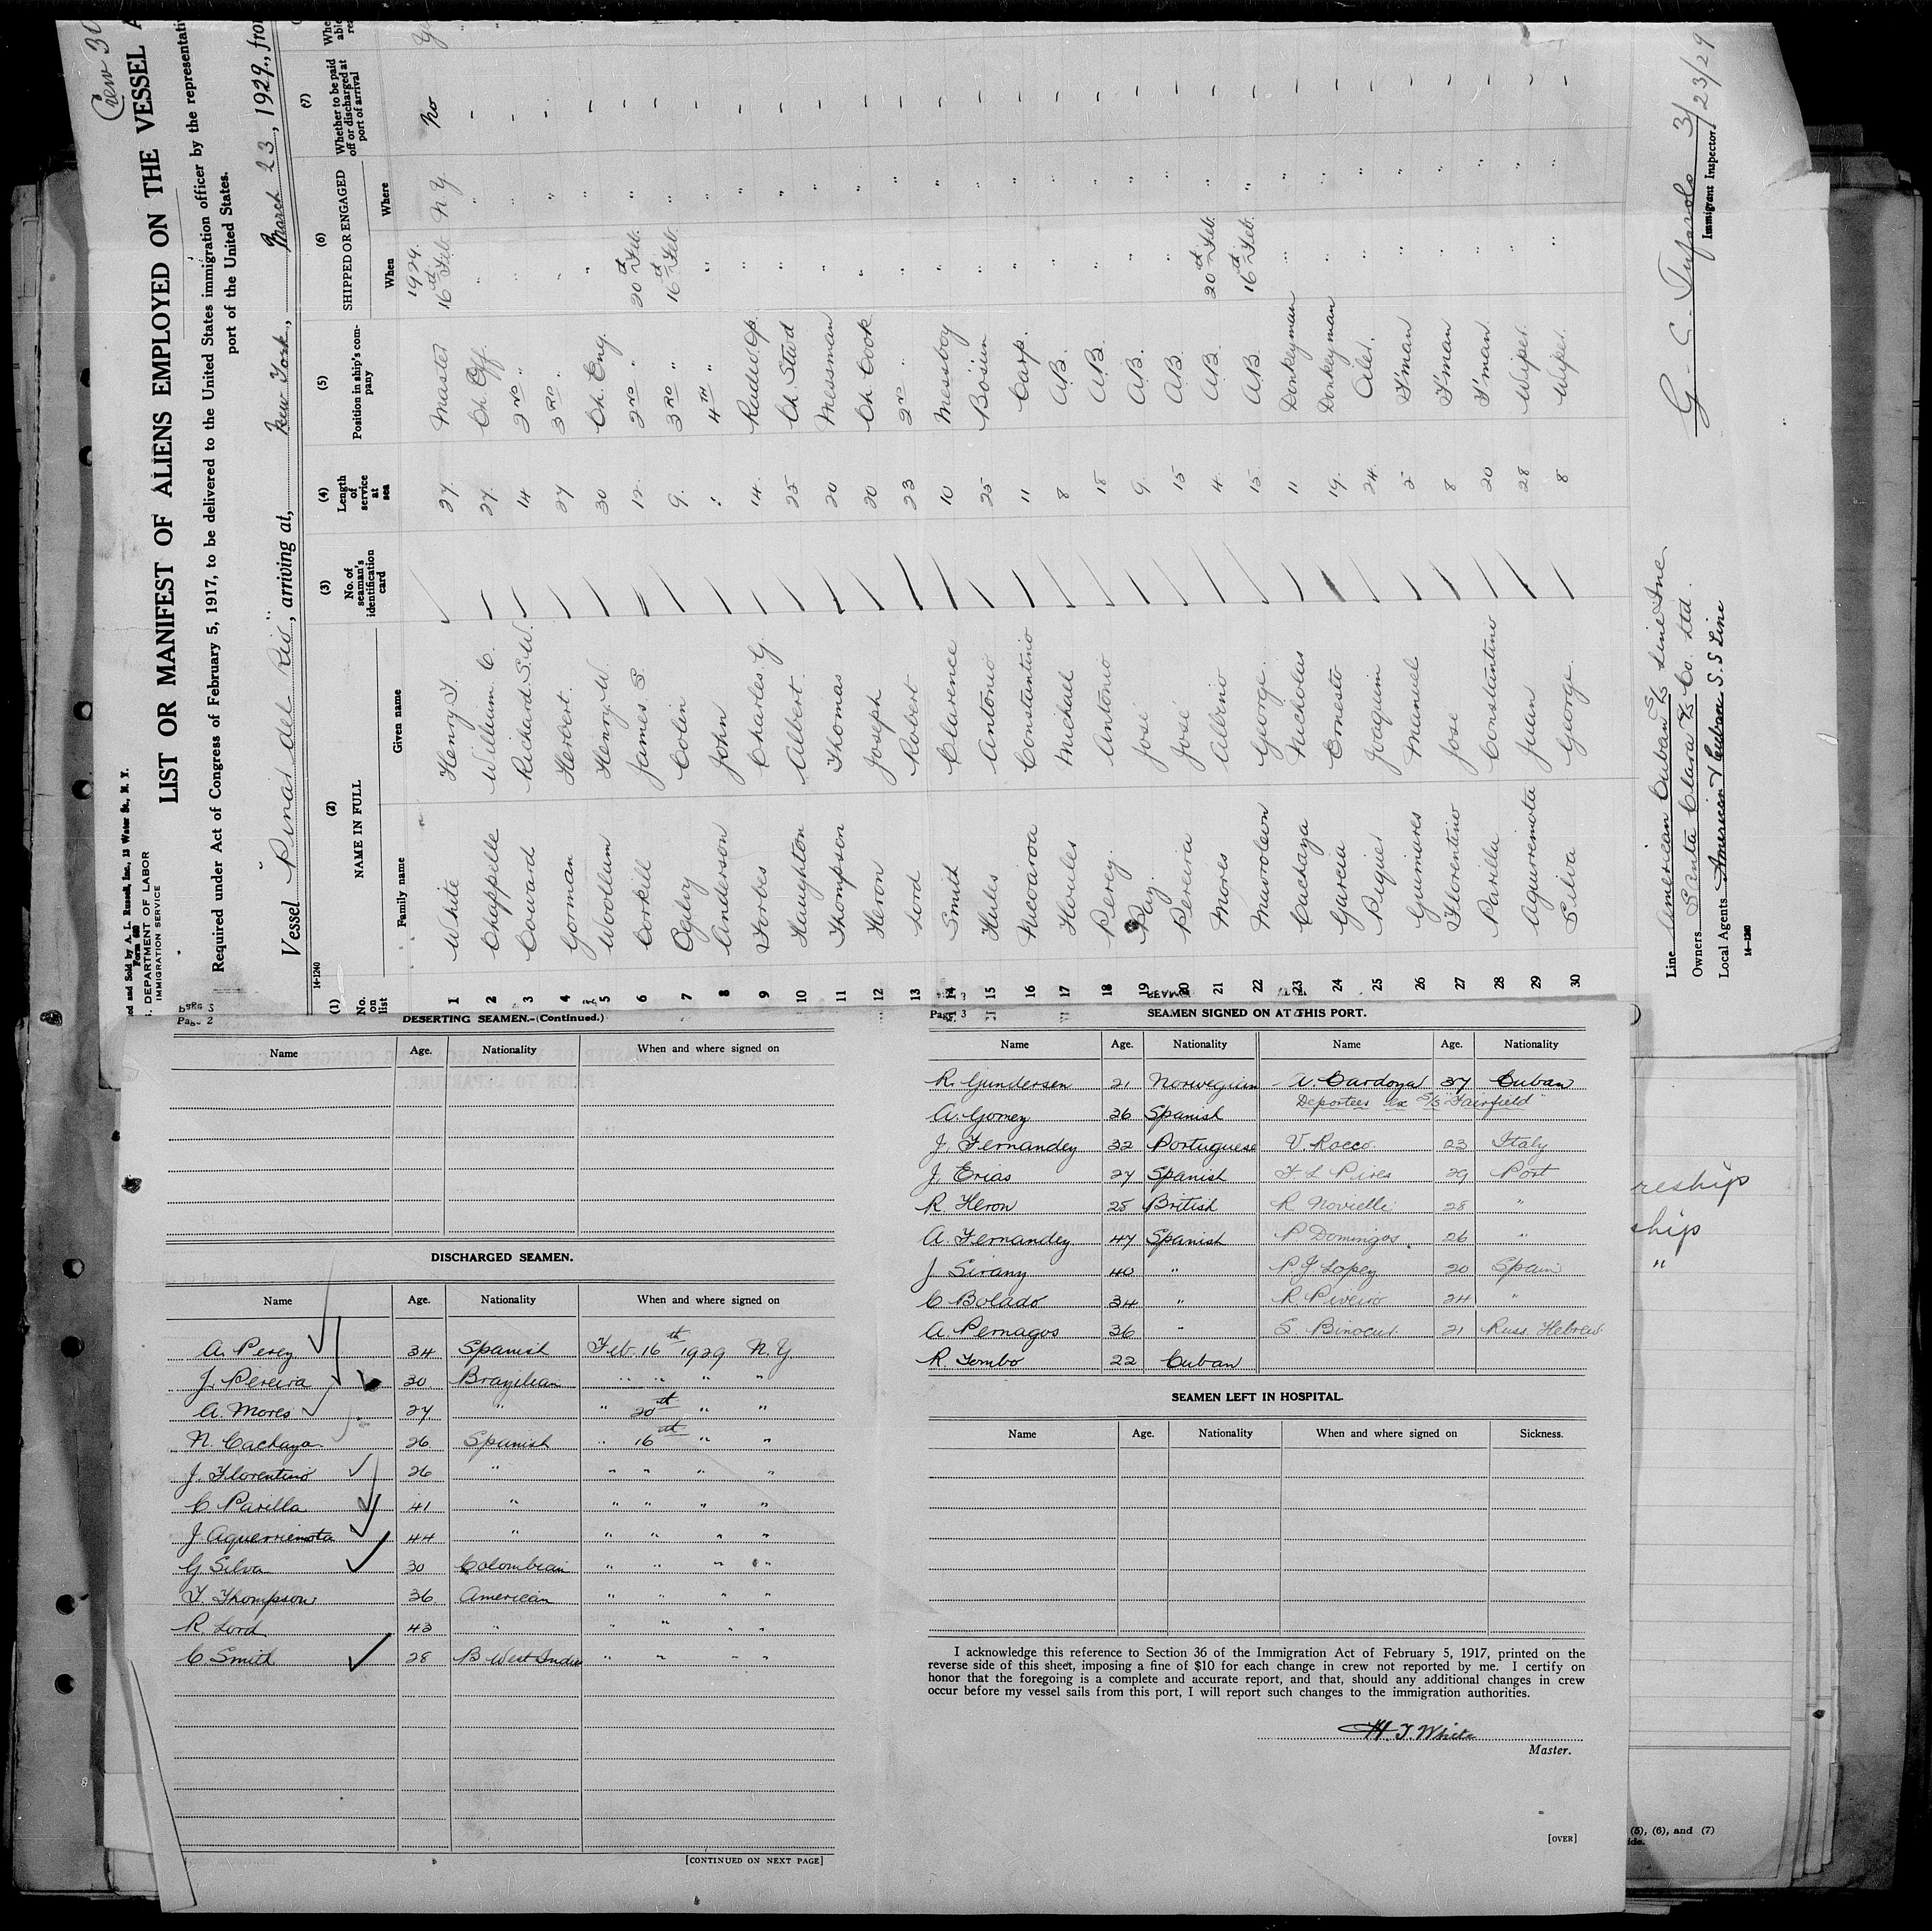 Crew 30
ed and Sold by A. L. Russell, Inc., 13 Water St., N. Y.
Form 680
DEPARTMENT OF LABOR
IMMIGRATION SERVICE
LIST OR MANIFEST OF ALIENS EMPLOYED ON THE VESSEL A
Required under Act of Congress of February 5, 1917, to be delivered to the United States immigration officer by the representati
port of the United States.
Vessel Pinar del Rio, arriving at, New York, March 23, 1929, fro
14-1240
(1) No. on list (2) NAME IN FULL Family name Given name (3) No. of seaman's identification card (4) Length of service at sea (5) Position in ship's company (6) SHIPPED OR ENGAGED When Where (7) Whether to be paid off or discharged at port of arrival
1 White Henry T. 27. Master 1929. 16th Feb. N.Y. No
2 Chappelle William C. 27. Ch. Off. " " -
3 Coward Richard S.W. 14 2ND " " " -
4 Gorman Herbert 27 3RD " " " -
5 Woollum Henry W. 30 Ch. Eng. " " -
6 Corkill James S. 12. 2ND " 20th Feb. " -
7 Ogilvy Colin 9. 3RD " 16th Feb. " -
8 Anderson John 4TH " " " -
9 Forbes Charles G 14. Radio Op. " " -
10 Haughton Albert 25 Ch. Stwd " " -
11 Thompson Thomas 20 Messman " " -
12 Heron Joseph 20 Ch. Cook " " -
13 Lord Robert 23 2ND " " " -
14 Smith Clarence 10 Messboy " " -
15 Antonio 25 Bosun " " -
16 Constantino 11 Carp. " " -
17 Houles Michael 8 A.B. " " -
18 Perez Antonio 18 A.B. " " -
19 Pay José 9. A.B. " " -
20 Pereira José 15 A.B. " " -
21 Mores Albino 4. A.B. 20th Feb. " -
22 George 15. A.B. 16th Feb. " -
23 Cachaza Nicholas 11 Donkeyman " " -
24 Garcia Ernesto 19. Donkeyman " " -
25 Joaquim 24. Oiler. " " -
26 Guimares Manuel 5 F'man " " -
27 Florentino Jose 8 F'man " " -
28 Parilla Constantino 20 F'man " " -
29 Aguerremota Juan 28 Wiper. " " -
30 Silva George 8 Wiper. " " -
Line American Cuban S/S Line Inc.
Owners Santa Clara S/S Co. Ltd.
Local Agents American & Cuban S.S Line
14-1240
3/23/29
Immigrant Inspector.
Page 2
DESERTING SEAMEN.-(Continued.)
Name Age. Nationality When and where signed on
DISCHARGED SEAMEN.
Name Age. Nationality When and where signed on
A. Perez 34 Spanish Feb. 16th 1929 N.Y
J. Pereira 30 Brazilian " " " "
A. Mores 27 " " 20th " "
N. Cachaza 26 Spanish " 16th " "
J. Florentino 26 " " " " "
C Parilla 41 " " " " "
J. Aguerremota 44 " " " " "
G Silva 30 Colombian " " " "
T. Thompson 36 American " " " "
R. Lord 43 " " " " "
C. Smith 28 B West Indies " " " "
[CONTINUED ON NEXT PAGE]
Page 3
SEAMEN SIGNED ON AT THIS PORT.
Name Age. Nationality Name Age. Nationality
R. Gundersen 21 Norwegian A. Cardoza 37 Cuban
A. Gomez 26 Spanish Deportees ex S/S "Fairfield"
J. Fernandez 32 Portuguese V. Rocco 23 Italy
J. Erias 27 Spanish F L Pires 29 Port
R. Heron 25 British R Novielli 28 "
A. Fernandez 47 Spanish P Domingos 26 "
J Sirany 40 " P. J Lopez 20 Spain
C Bolado 34 " R. Piveiro 24 "
A. Pernagos 36 " S. Binocut 21 Russ. Hebrew
R. Tombo 22 Cuban
SEAMEN LEFT IN HOSPITAL.
Name Age. Nationality When and where signed on Sickness.
I acknowledge this reference to Section 36 of the Immigration Act of February 5, 1917, printed on the
reverse side of this sheet, imposing a fine of $10 for each change in crew not reported by me. I certify on
honor that the foregoing is a complete and accurate report, and that, should any additional changes in crew
occur before my vessel sails from this port, I will report such changes to the immigration authorities.
H. T. White
Master.
[OVER]
reship
ship
"
(5), (6), and (7)
ide.